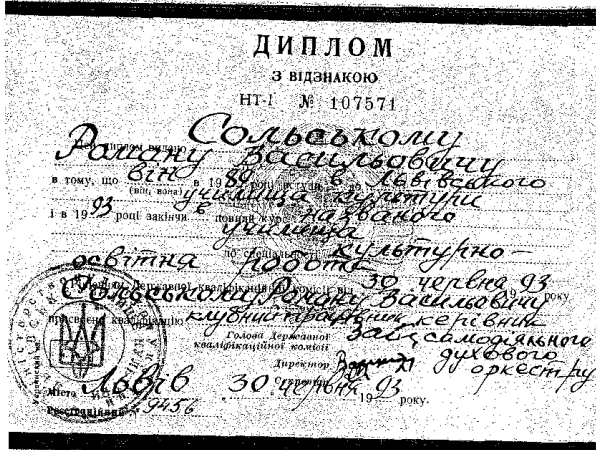 ДИПЛОМ
З ВІДЗНАКОЮ
НТ-І № 107571
Цей диплом видано Сольському
Роману Васильовичу
в тому, що він в 1989 році вступив до Львівського
(він, вона)
училища культури
і в 1993 році закінчив повний курс названого
училища
по спеціальності культурно-
освітня робота
Рішенням Державної кваліфікаційної комісії від 30 червня 1993 року
Сольському Роману Васильовичу
присвоєно кваліфікацію клубний працівник, керівник
самодіяльного
духового
оркестру
Голова Державної
кваліфікаційної комісії
Директор
Секретар
Місто Львів 30 червня 1993 року.
Реєстраційний 9456